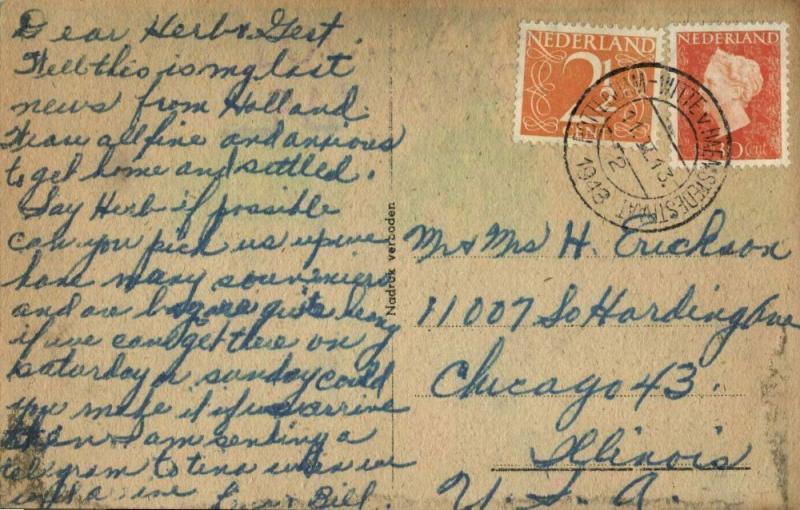 Dear Herb & Gert.
Well this is my last
news from Holland.
We are all fine and anxious
to get home and settled.
Say Herb if possible
can you pick us up we
have many souveniers
and our bags are quite heavy
if we can get there on
saturday or sunday could
you make it if we arrive
then I am sending a
telegram to tena when we
will arrive & Bill.
Nadruk verboden
NEDERLAND
2½
CENT
NEDERLAND
30 cent
1948
Mr & Mrs H. Erickson
11007 So Harding Ave
Chicago 43.
Illinois
U. S. A.